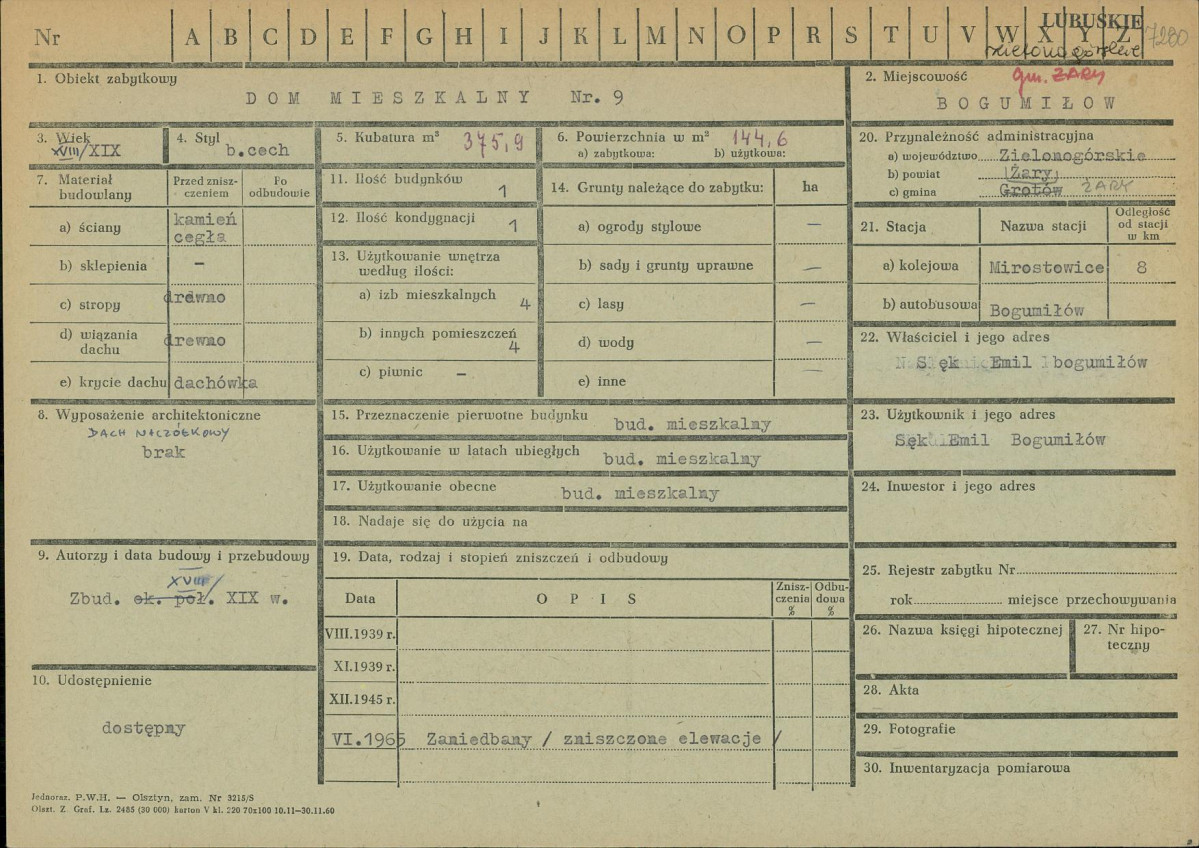 Nr A B C D E F G H I J K L M N O P R S T U V W X Y Z
LUBUSKIE
zielonogórskie
7280
1. Obiekt zabytkowy
DOM MIESZKALNY Nr. 9
2. Miejscowość gm. ŻARY
BOGUMIŁOW
3. Wiek
XVIII/XIX
4. Styl
b.cech
5. Kubatura m³ 375,9
6. Powierzchnia w m² 144,6
a) zabytkowa: b) użytkowa:
7. Materiał budowlany
Przed zniszczeniem
Po odbudowie
a) ściany kamień
cegła
b) sklepienia –
c) stropy drewno
d) wiązania dachu drewno
e) krycie dachu dachówka
8. Wyposażenie architektoniczne
DACH NACZÓŁKOWY
brak
9. Autorzy i data budowy i przebudowy
XVIII/
Zbud. ok. poł. XIX w.
10. Udostępnienie
dostępny
11. Ilość budynków 1
12. Ilość kondygnacji 1
13. Użytkowanie wnętrza
według ilości:
a) izb mieszkalnych 4
b) innych pomieszczeń 4
c) piwnic –
14. Grunty należące do zabytku: ha
a) ogrody stylowe —
b) sady i grunty uprawne —
c) lasy —
d) wody —
e) inne —
15. Przeznaczenie pierwotne budynku bud. mieszkalny
16. Użytkowanie w latach ubiegłych bud. mieszkalny
17. Użytkowanie obecne bud. mieszkalny
18. Nadaje się do użycia na
19. Data, rodzaj i stopień zniszczeń i odbudowy
Data OPIS Zniszczenia % Odbudowa %
VIII.1939 r.
XI.1939 r.
XII.1945 r.
VI.1965 Zaniedbany / zniszczone elewacje /
20. Przynależność administracyjna
a) województwo Zielonogórskie
b) powiat (Żary)
c) gmina Grotów ŻARY
21. Stacja Nazwa stacji Odległość od stacji w km
a) kolejowa Mirostowice 8
b) autobusowa Bogumiłów
22. Właściciel i jego adres
Sęk Emil bogumiłów
23. Użytkownik i jego adres
Sęk Emil Bogumiłów
24. Inwestor i jego adres
25. Rejestr zabytku Nr
rok miejsce przechowywania
26. Nazwa księgi hipotecznej
27. Nr hipoteczny
28. Akta
29. Fotografie
30. Inwentaryzacja pomiarowa
Jednoraz. P.W.H. — Olsztyn, zam. Nr 3215/S
Olszt. Z. Graf. Lz. 2485 (30 000) karton V kl. 220 70x100 10.11—30.11.60